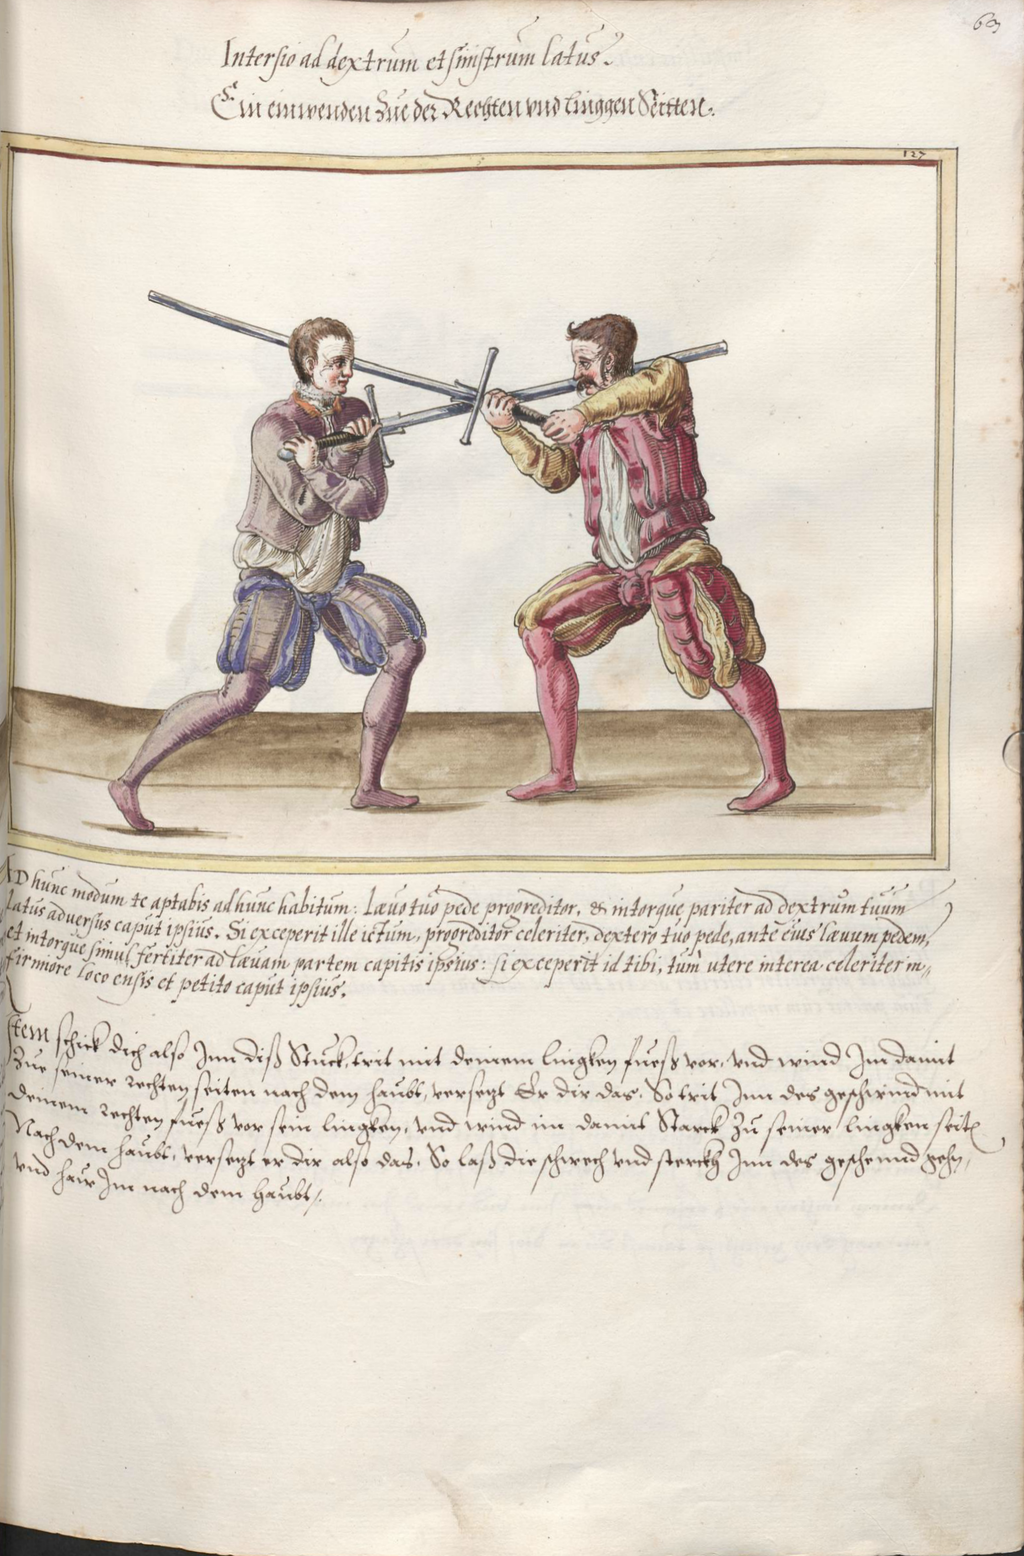 63
Intersio ad dextrum et sinistrum latus.
Ein einwenden Zue der Rechten vnd linggen Seitten.
127
AD hunc modum te aptabis ad hunc habitum: Lævo tuo pede progreditor, & intorque pariter ad dextrum tuum
latus adversus caput ipsius. Si exceperit ille ictum, progreditor celeriter, dextero tuo pede, ante eius lævum pedem,
et intorque simul fertiter ad lævam partem capitis ipsius: si exceperit id tibi, tum utere interea celeriter in„
firmiore loco ensis et petito caput ipsius.
Item schick dich also Inn diß Stuck, trit mit deinem lingken fuess vor, vnd wind Im damit
Zue seiner rechten seiten nach dem haubt, versezt Er dir das. So trit Inn des geschwind mit
deinem rechten fuess vor sein lingken, vnd wind im damit Starck Zu seiner lingken seit
Nach dem haubt, versezt er dir also das, So laß die schwech vnd sterckh Inn des geschwind gehn,
vnd haw Im nach dem haubt.